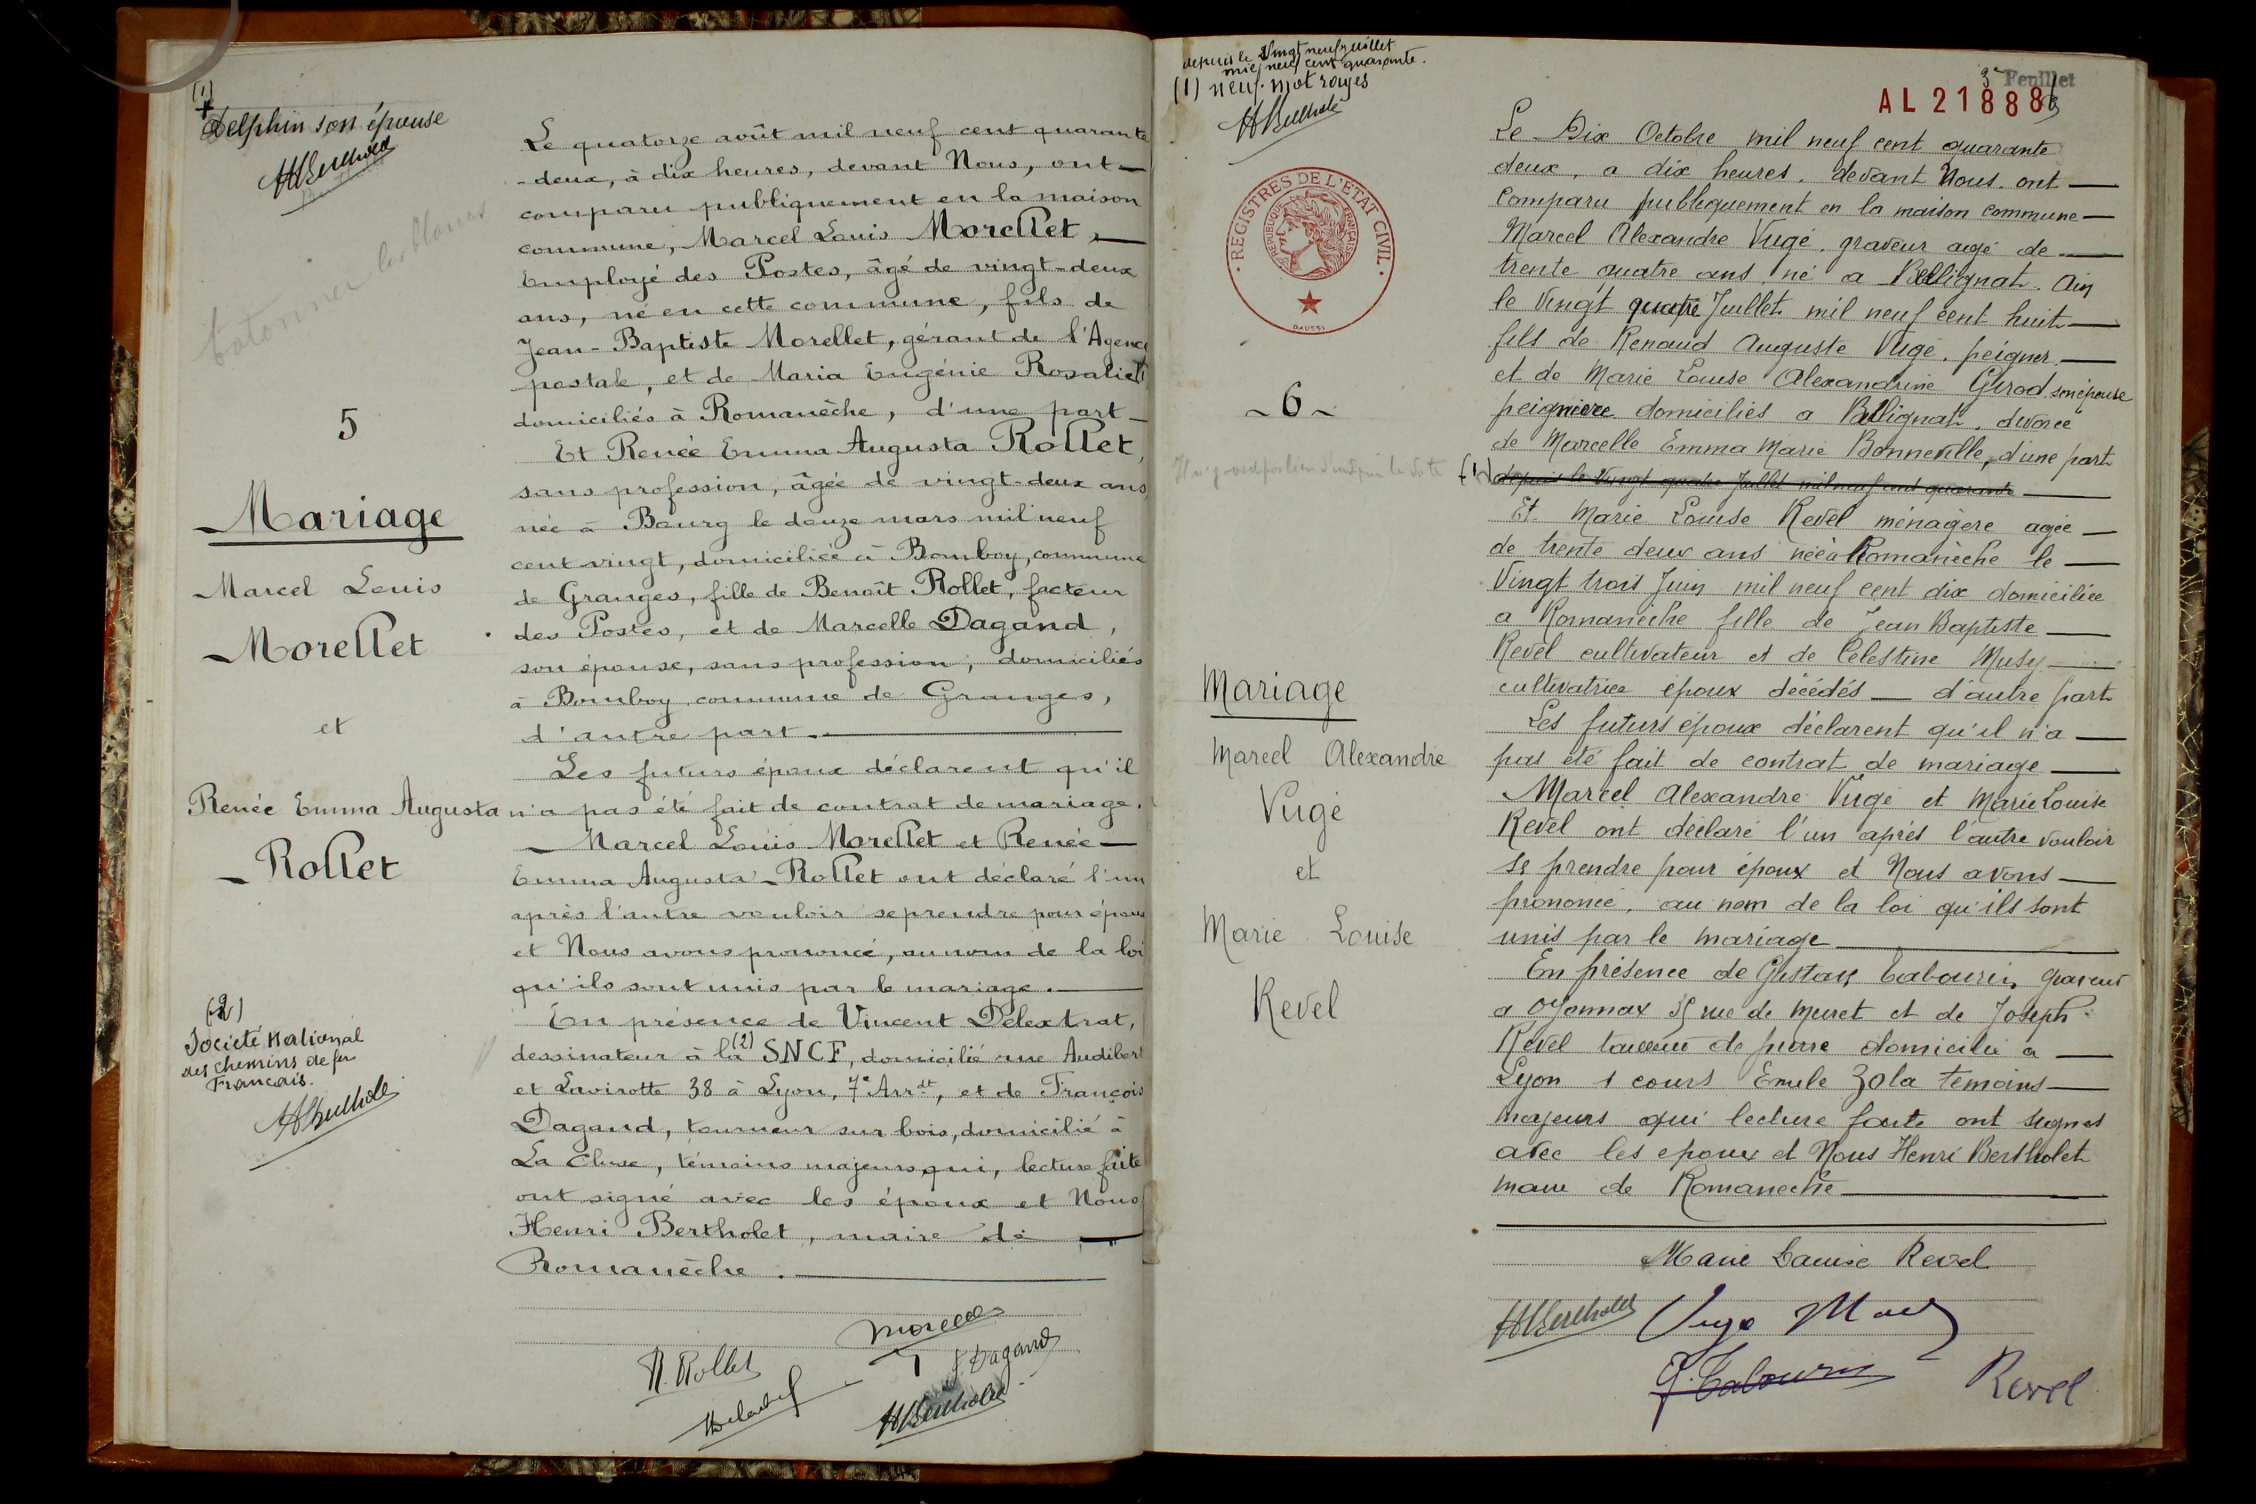 (1)
Delphin son épouse
HBertholet
bâtonner les blancs
5
Mariage
Marcel Louis
Morellet
et
Renée Emma Augusta
Rollet
(2)
Société National
des chemins de fer
Francais.
HBertholet
Le quatorze août mil neuf cent quarante
-deux, à dix heures, devant Nous, ont
comparu publiquement en la maison
commune, Marcel Louis Morellet,
Employé des Postes, âgé de vingt-deux
ans, né en cette commune, fils de
Jean-Baptiste Morellet, gérant de l'Agence
postale, et de Maria Eugénie Rosalie (1)
domiciliés à Romanèche, d'une part
Et Renée Emma Augusta Rollet,
sans profession, âgée de vingt-deux ans
née à Bourg le douze mars mil neuf
cent vingt, domiciliée à Bomboy, commune
de Granges, fille de Benoît Rollet, facteur
des Postes, et de Marcelle Dagand,
son épouse, sans profession, domiciliés
à Bomboy commune de Granges,
d'autre part.
Les futurs époux déclarent qu'il
n'a pas été fait de contrat de mariage.
Marcel Louis Morellet et Renée
Emma Augusta Rollet ont déclaré l'un
après l'autre vouloir se prendre pour époux
et Nous avons prononcé, au nom de la loi
qu'ils sont unis par le mariage.
En présence de Vincent Delextrat,
dessinateur à la (2) SNCF, domicilié rue Audibert
et Lavirotte 38 à Lyon, 7e Arrdt, et de François
Dagand, tourneur sur bois, domicilié à
La Cluse, témoins majeurs, qui, lecture faite
ont signé avec les époux et Nous
Henri Bertholet, maire de
Romanèche.
Morellet
R. Rollet
F Dagand
Delextrat
HBertholet
depuis le Vingt neuf juillet
mil neuf cent quarante.
(1) neuf mot rayés
HBertholet
REGISTRES DE L'ETAT CIVIL
REPUBLIQUE FRANÇAISE
DAUSSI
6
Mariage
Marcel Alexandre
Vugé
et
Marie Louise
Revel
3e Feuillet
AL 21888
Le Dix Octobre mil neuf cent quarante
deux, a dix heures, devant Nous ont
Comparu publiquement en la maison commune
Marcel Alexandre Vugé, graveur agé de
trente quatre ans, né a Bellignat, Ain
le Vingt quatre Juillet mil neuf cent huit
fils de Renaud Auguste Vugé, peigner
et de Marie Louise Alexandrine Girod son épouse
peignière domiciliés a Bellignat, divorcé
de Marcelle Emma Marie Bonneville, d'une part
(1) depuis le Vingt quatre Juillet mil neuf cent quarante
Et Marie Louise Revel ménagère agée
de trente deux ans née à Romanèche le
Vingt trois Juin mil neuf cent dix domiciliée
a Romanèche fille de Jean Baptiste
Revel cultivateur et de Célestine Musy
cultivatrice époux décédés d'autre part
Les futurs époux déclarent qu'il n'a
pas été fait de contrat de mariage
Marcel Alexandre Vugé et Marie Louise
Revel ont déclaré l'un après l'autre vouloir
se prendre pour époux et Nous avons
prononcé, au nom de la loi qu'ils sont
unis par le mariage
En présence de Gustave Tabourin, graveur
a Oyonnax 35 rue de Meuret et de Joseph
Revel tailleur de pierre domicilié a
Lyon 1 cours Emile Zola témoins
majeurs qui lecture faite ont signés
avec les epoux et Nous Henri Bertholet
maire de Romanèche
Marie Louise Revel
HBertholet
Vugé Marcel
G. Tabourin
Revel